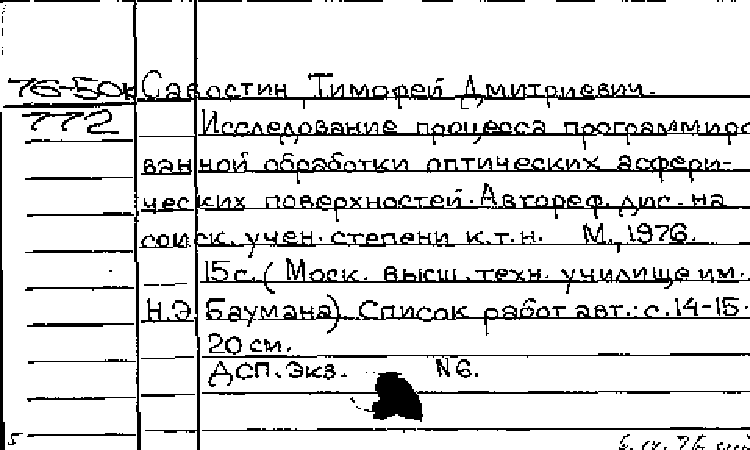 76-50к Савостин Тимофей Дмитриевич.
772 Исследование процесса программиро
ванной обработки оптических асфери-
ческих поверхностей. Автореф. дис. на
соиск. учен. степени к.т.н. М., 1976.
15с. (Моск. высш. техн. училище им.
Н.Э. Баумана). Список работ авт.: с.14-15.
20 см.
ДСП. Экз. N6.